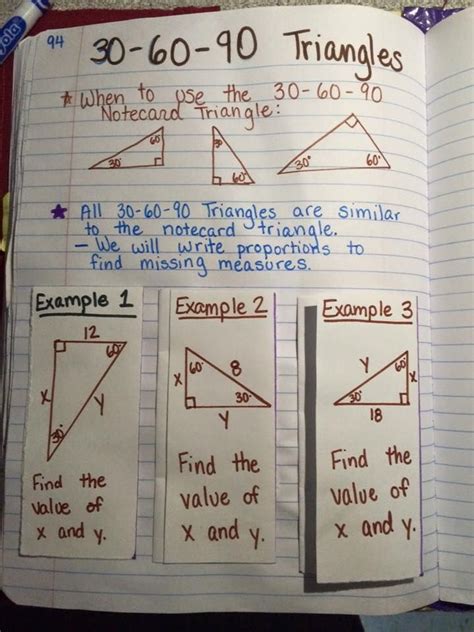 ola
94
30-60-90 Triangles
★ When to use the 30-60-90
Notecard Triangle:
30° 60°
30° 60°
30° 60°
★ All 30-60-90 Triangles are similar
to the notecard triangle.
- We will write proportions to
find missing measures.
Example 1
12
60°
x
y
30°
Find the
value of
x and y.
Example 2
60°
8
x
30°
y
Find the
value of
x and y.
Example 3
y
60°
x
30°
18
Find the
value of
x and y.